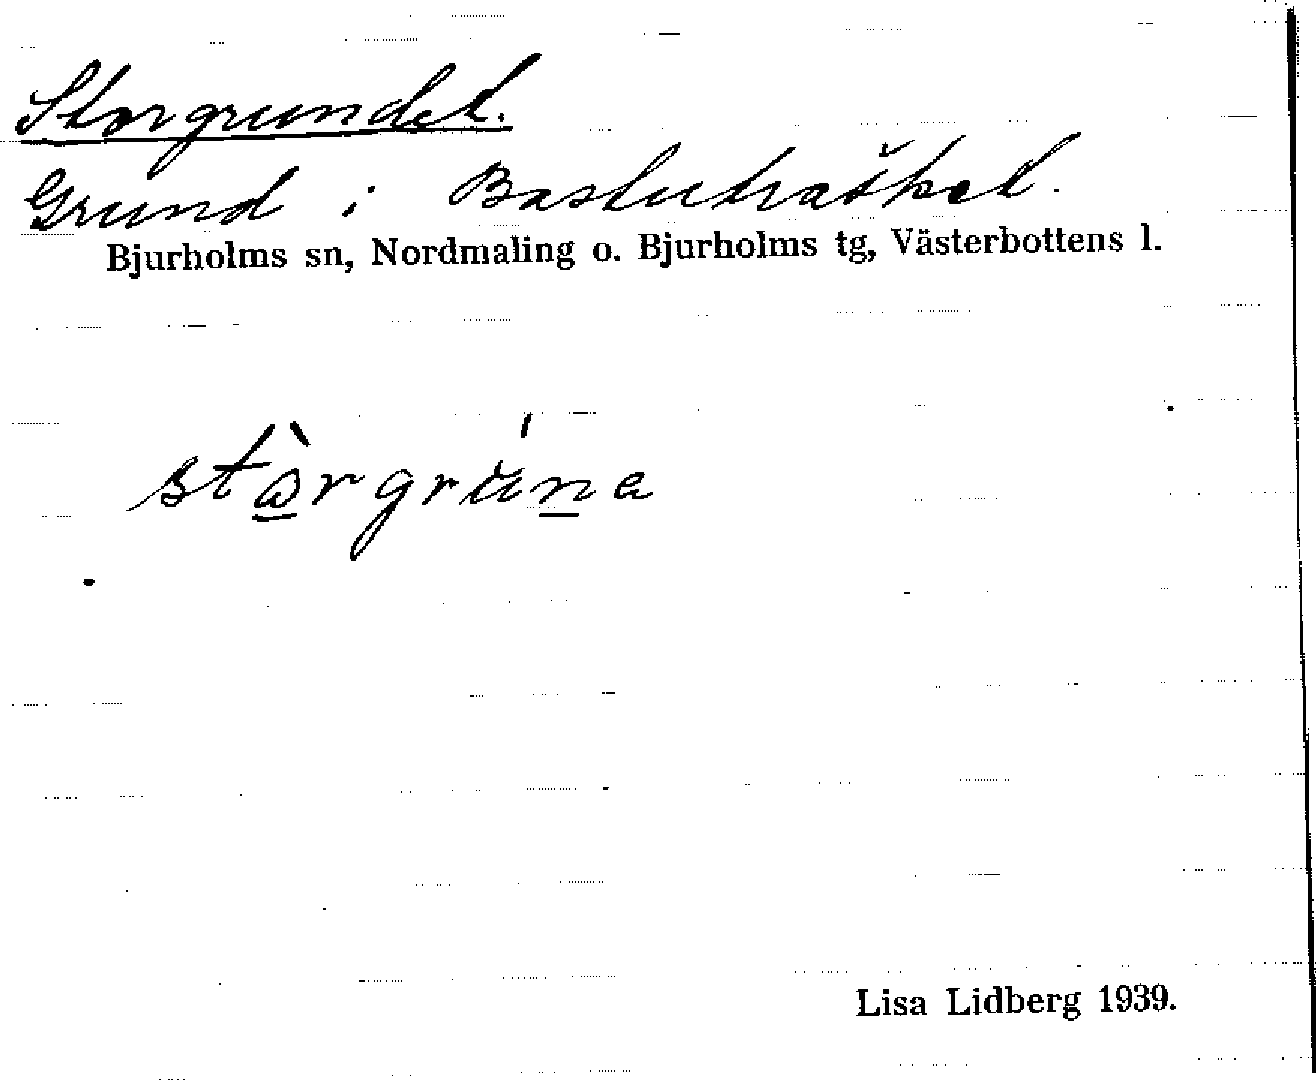 Storgrundet.
Grund i Bastuträsket.
Bjurholms sn, Nordmaling o. Bjurholms tg, Västerbottens l.
stòrgrúna
Lisa Lidberg 1939.